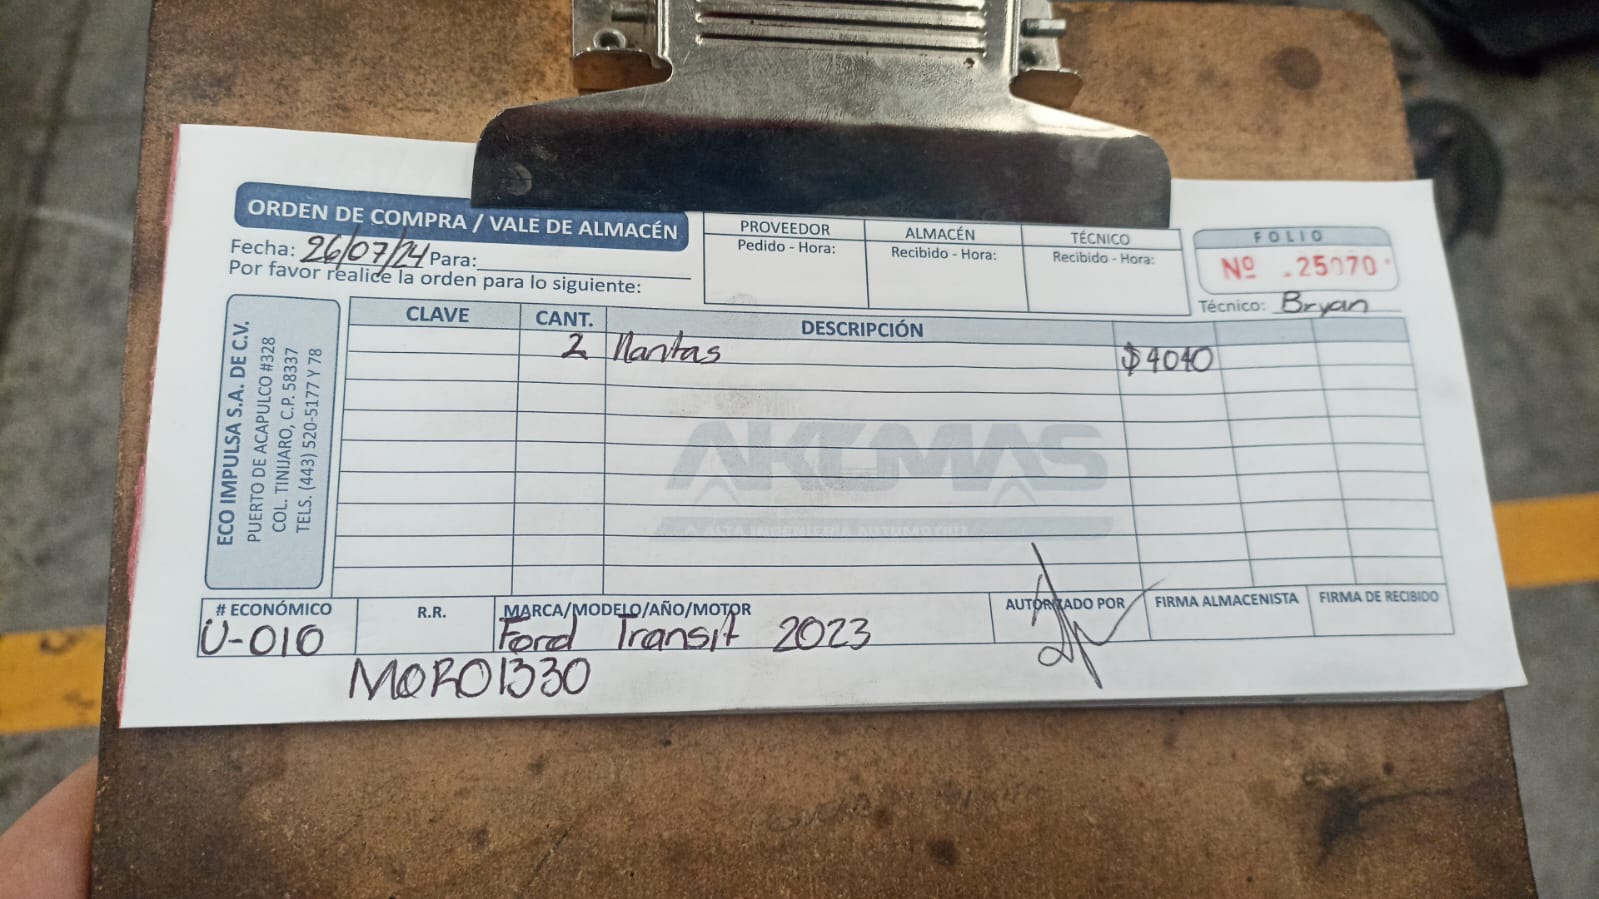 ORDEN DE COMPRA / VALE DE ALMACÉN
Fecha: 26/07/24 Para:
Por favor realice la orden para lo siguiente:
PROVEEDOR
Pedido - Hora:
ALMACÉN
Recibido - Hora:
TÉCNICO
Recibido - Hora:
FOLIO
Nº 25070
Técnico: Bryan
ECO IMPULSA S.A. DE C.V.
PUERTO DE ACAPULCO #328
COL. TINIJARO, C.P. 58337
TELS. (443) 520-5177 Y 78
CLAVE CANT. DESCRIPCIÓN
2 llantas $4040
AKUMAS
ALTA INGENIERIA AUTOMOTRIZ
# ECONÓMICO
U-010
R.R.
MARCA/MODELO/AÑO/MOTOR
Ford Transit 2023
AUTORIZADO POR
FIRMA ALMACENISTA
FIRMA DE RECIBIDO
MORO1330